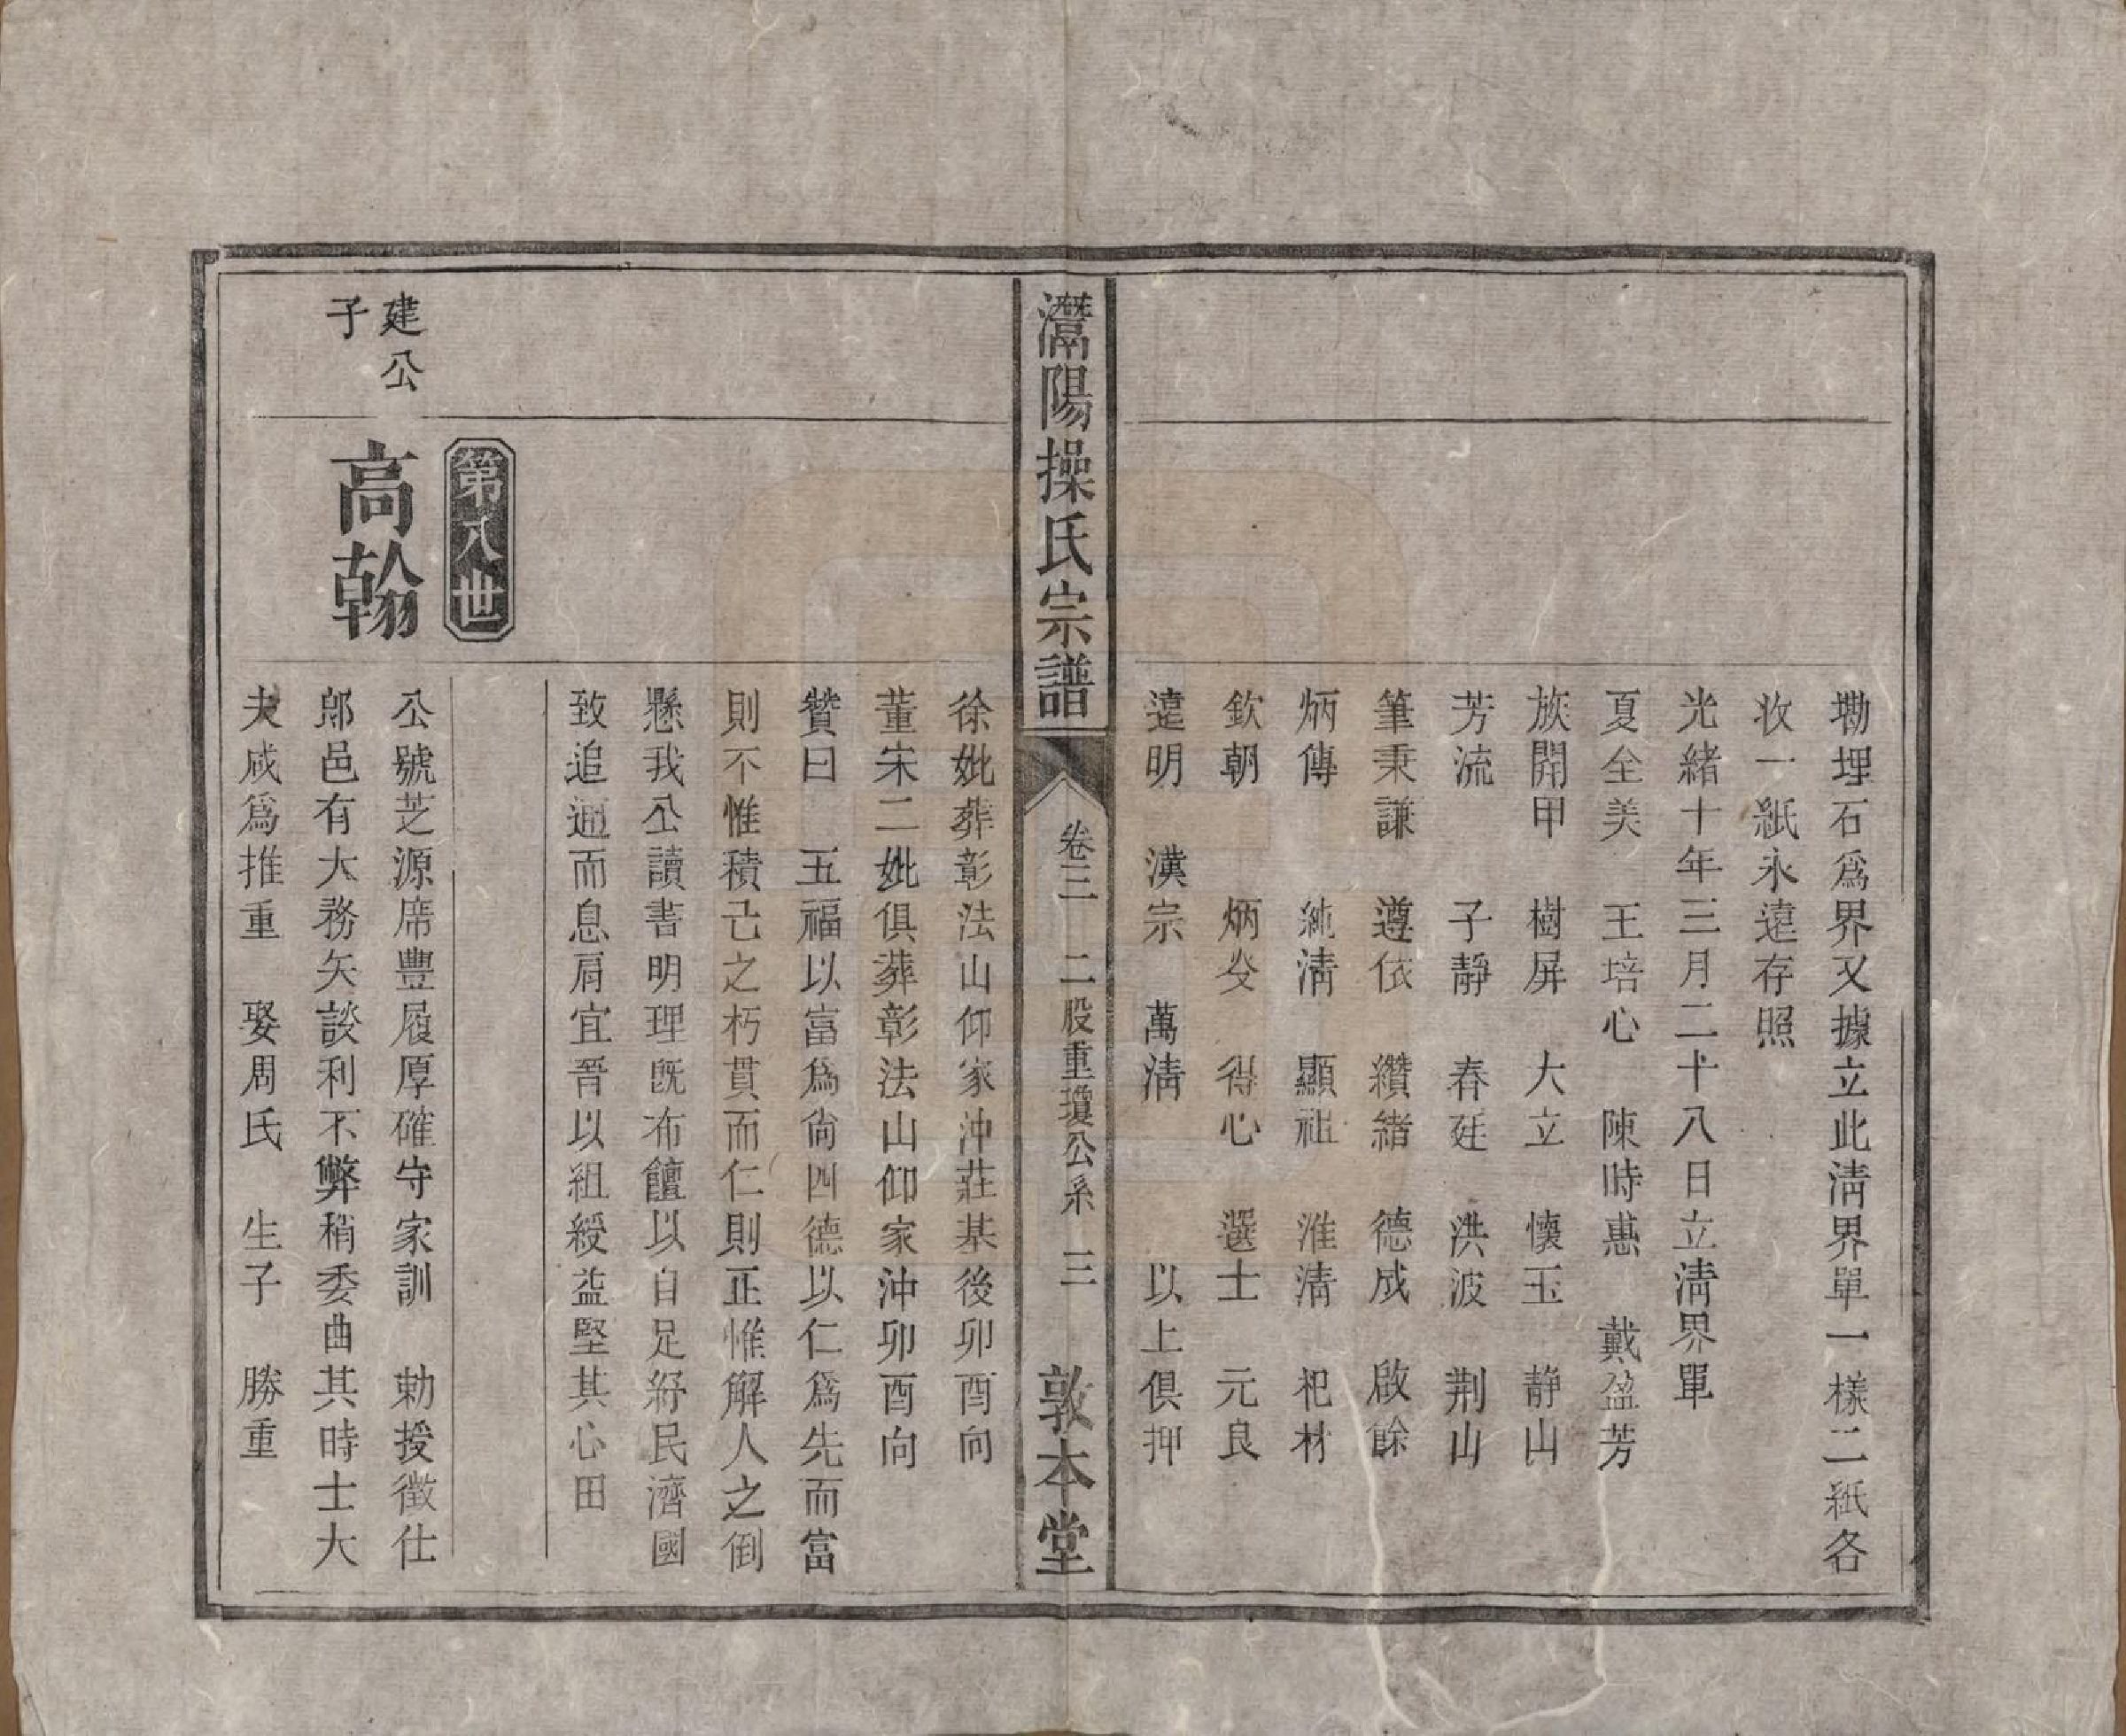 墈埋石爲界又據立此淸界單一樣二紙各
收一紙永遠存照
光緒十年三月二十八日立淸界單
夏全美　王培心　陳時惠　戴盈芳
族開甲　樹屏　大立　懷玉　静山
芳流　子靜　春廷　洪波　荆山
筆秉謙　遵依　纘緒　德成　啟餘
炳傳　純淸　顯祖　淮淸　祀材
欽朝　炳癸　得心　選士　元良
達明　漢宗　萬淸　以上俱押
灊陽操氏宗譜　卷三　二股重瓊公系　三　敦本堂
徐妣葬彰法山仰家沖莊基後卯酉向
董宋二妣俱葬彰法山仰家沖卯酉向
贊曰　五福以富爲尙四德以仁爲先而富
則不惟積己之朽貫而仁則正惟解人之倒
懸我公讀書明理既布饘以自足紓民濟國
致追逋而息肩宜晉以組綬益堅其心田
第八世
建公
子
高翰
公號芝源席豐履厚確守家訓　勅授徵仕
郎邑有大務矢談利不弊稍委曲其時士大
夫咸爲推重　娶周氏　生子　勝重